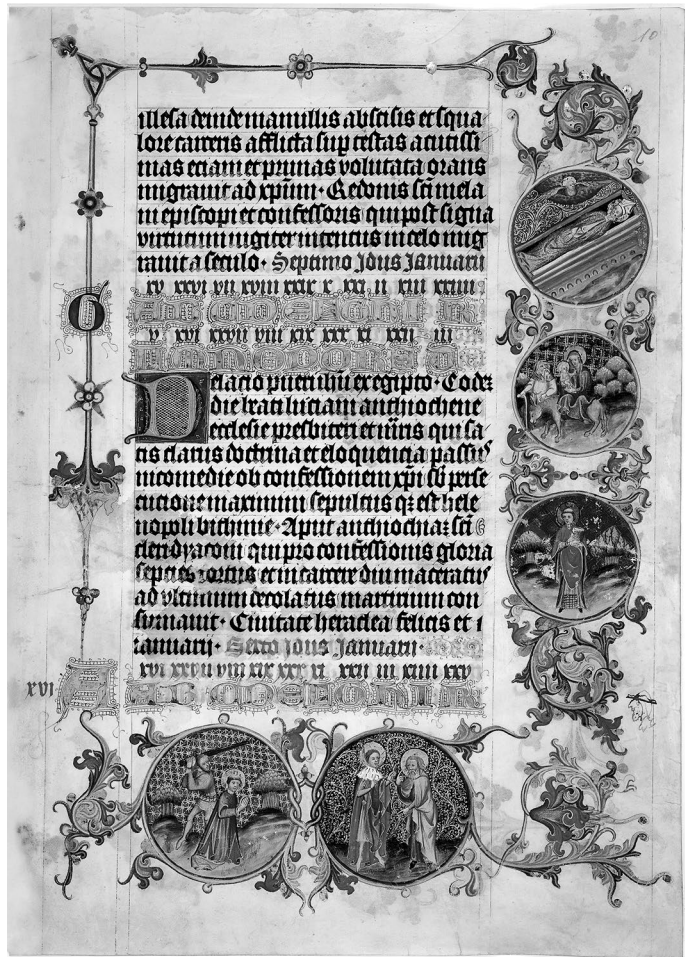 10
illesa deinde mamillis abscisis et squa
lore carceris afflicta sup testas acutissi
mas eciam et prunas volutata orans
migrauit ad xpm̄. Redonis sc̄i mela
nii episcopi et confessoris qui post signa
virtutum iugiter intentus in celo mig
rauit a seculo. Septimo Idus Januarii
xv xxvi vii xviii xxix x xxi ii xiii xxiiii
G
v xvi xxvii viii xix xxx xi xxii iii
Delacio pueri ih̄u ex egipto. Eodē
die beati luciani anthiochene
ecclesie presbiteri et mr̄is qui sa
tis clarus doctrina et eloquencia passꝰ
nicomedie ob confessionem xp̄i sb̄ perse
cucione maximini sepultus qz est hele
nopoli bithinie. Aput anthiochiaz sc̄i
cleri dyaconi qui pro confessionis gloria
septies tortus et in carcere diu maceratꝰ
ad vltimum decolatus martirium con
sumauit. Ciuitate heraclea felicis et i
ianuarii. Sexto idus Januarii.
xvi xxvii viii xix xxx xi xxii iii xiiii xxv
xvi A